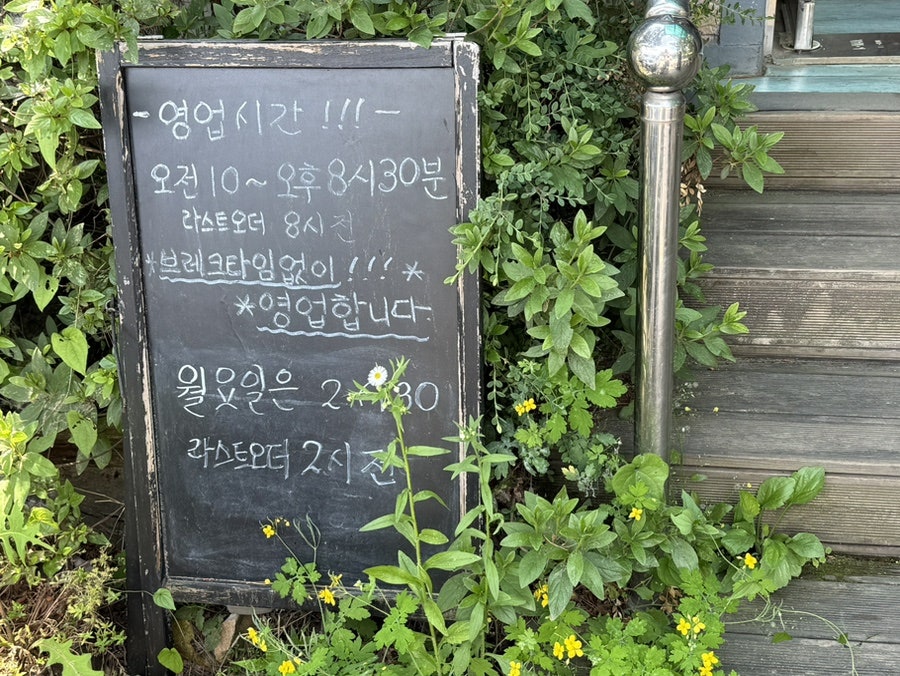 - 영업시간 !!! -
오전 10 ~ 오후 8시 30분
라스트오더 8시 전
*브레크타임없이 !!! *
*영업합니다
월요일은 2 30
라스트오더 2시 전